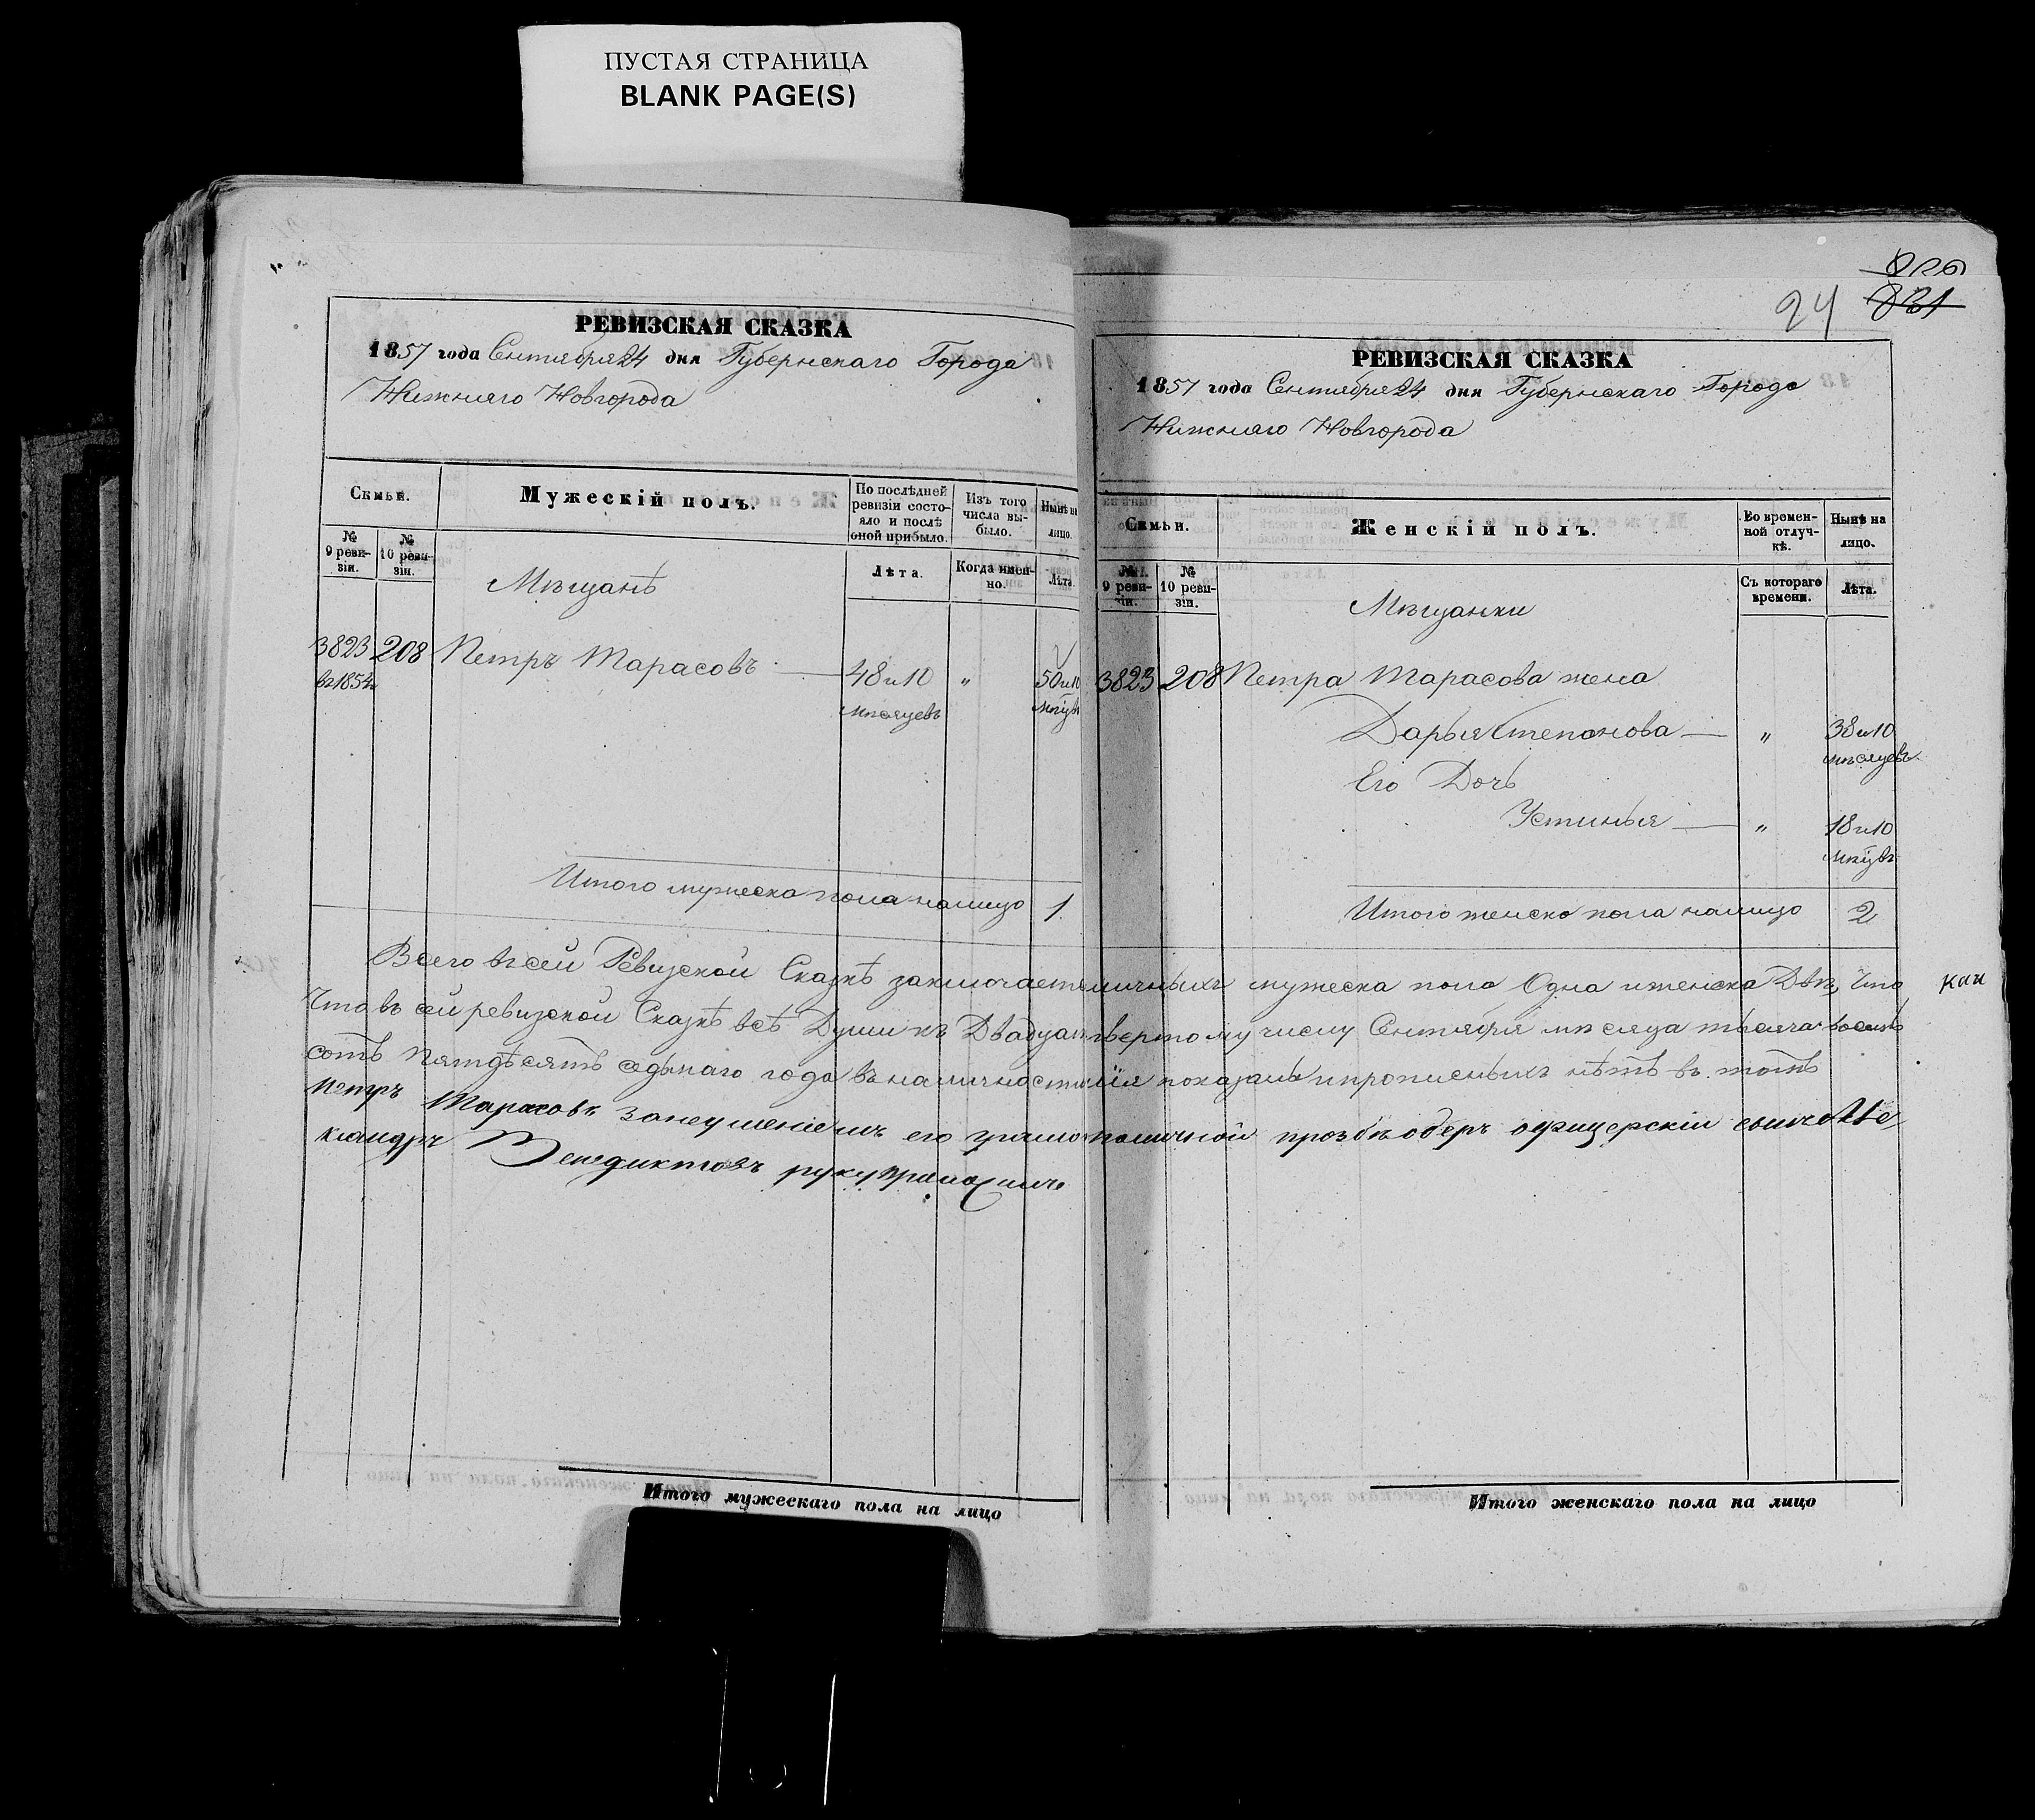 ПУСТАЯ СТРАНИЦА
BLANK PAGE(S)
РЕВИЗСКАЯ СКАЗКА
1857 года Сентября 24 дня Губернскаго Города
Нижняго Новгорода
Семьи.
Мужескій полъ.
По послѣдней ревизіи состояло и послѣ оной прибыло.
Изъ того числа выбыло.
Нынѣ на лицо.
№ 9 ревизіи.
№ 10 ревизіи.
Лѣта.
Когда именно.
Лѣта.
Мѣщанѣ
3823 208 Петръ Тарасовъ — 48 и 10 " 50 и 10
въ 1854 мѣсяцевъ мѣцвъ
Итого мужеска пола налицо 1
24 831
РЕВИЗСКАЯ СКАЗКА
1857 года Сентября 24 дня Губернскаго Города
Нижняго Новгорода
Семьи.
Женскій полъ.
Во временной отлучкѣ.
Нынѣ на лицо.
№ 9 ревизіи.
№ 10 ревизіи.
Съ котораго времени.
Лѣта.
Мѣщанки
3823 208 Петра Тарасова жена
Дарья Степанова — " 38 и 10
мѣсяцевъ
Его Дочь
Устинья — " 18 и 10
мѣцвъ
Итого женска пола налицо 2
Всего въ сей Ревизской Сказкѣ заключается личныхъ мужеска пола Одна и женска Двѣ, Что
Что въ сей ревизской Сказкѣ всѣ Души къ Двадцать вертому числу Сентября мѣсяца тысяча восемь
сотъ пятдѣсятъ седьмаго года въ наличности показаны и прописныхъ нѣтъ въ томъ
Петръ Тарасовъ за неумениемъ его грамо личной прозбѣ обер офицерскіи сынъ
Венедиктовъ руку приложилъ
Итого мужескаго пола на лицо
Итого женскаго пола на лицо